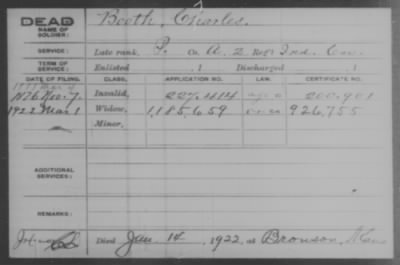 DEAD
NAME OF SOLDIER:
Booth, Charles.
SERVICE:
Late rank, P. Co. A, 2 Reg't Ind. Cav.
TERM OF SERVICE:
Enlisted , 1 Discharged , 1
DATE OF FILING. CLASS. APPLICATION NO. LAW. CERTIFICATE NO.
1876 Nov. 7. Invalid, 227.414 200.901
1922 Mar 1 Widow, 1,185,659 926,755
Minor,
ADDITIONAL SERVICES:
REMARKS:
Died Jan 14, 1922, at Bronson,